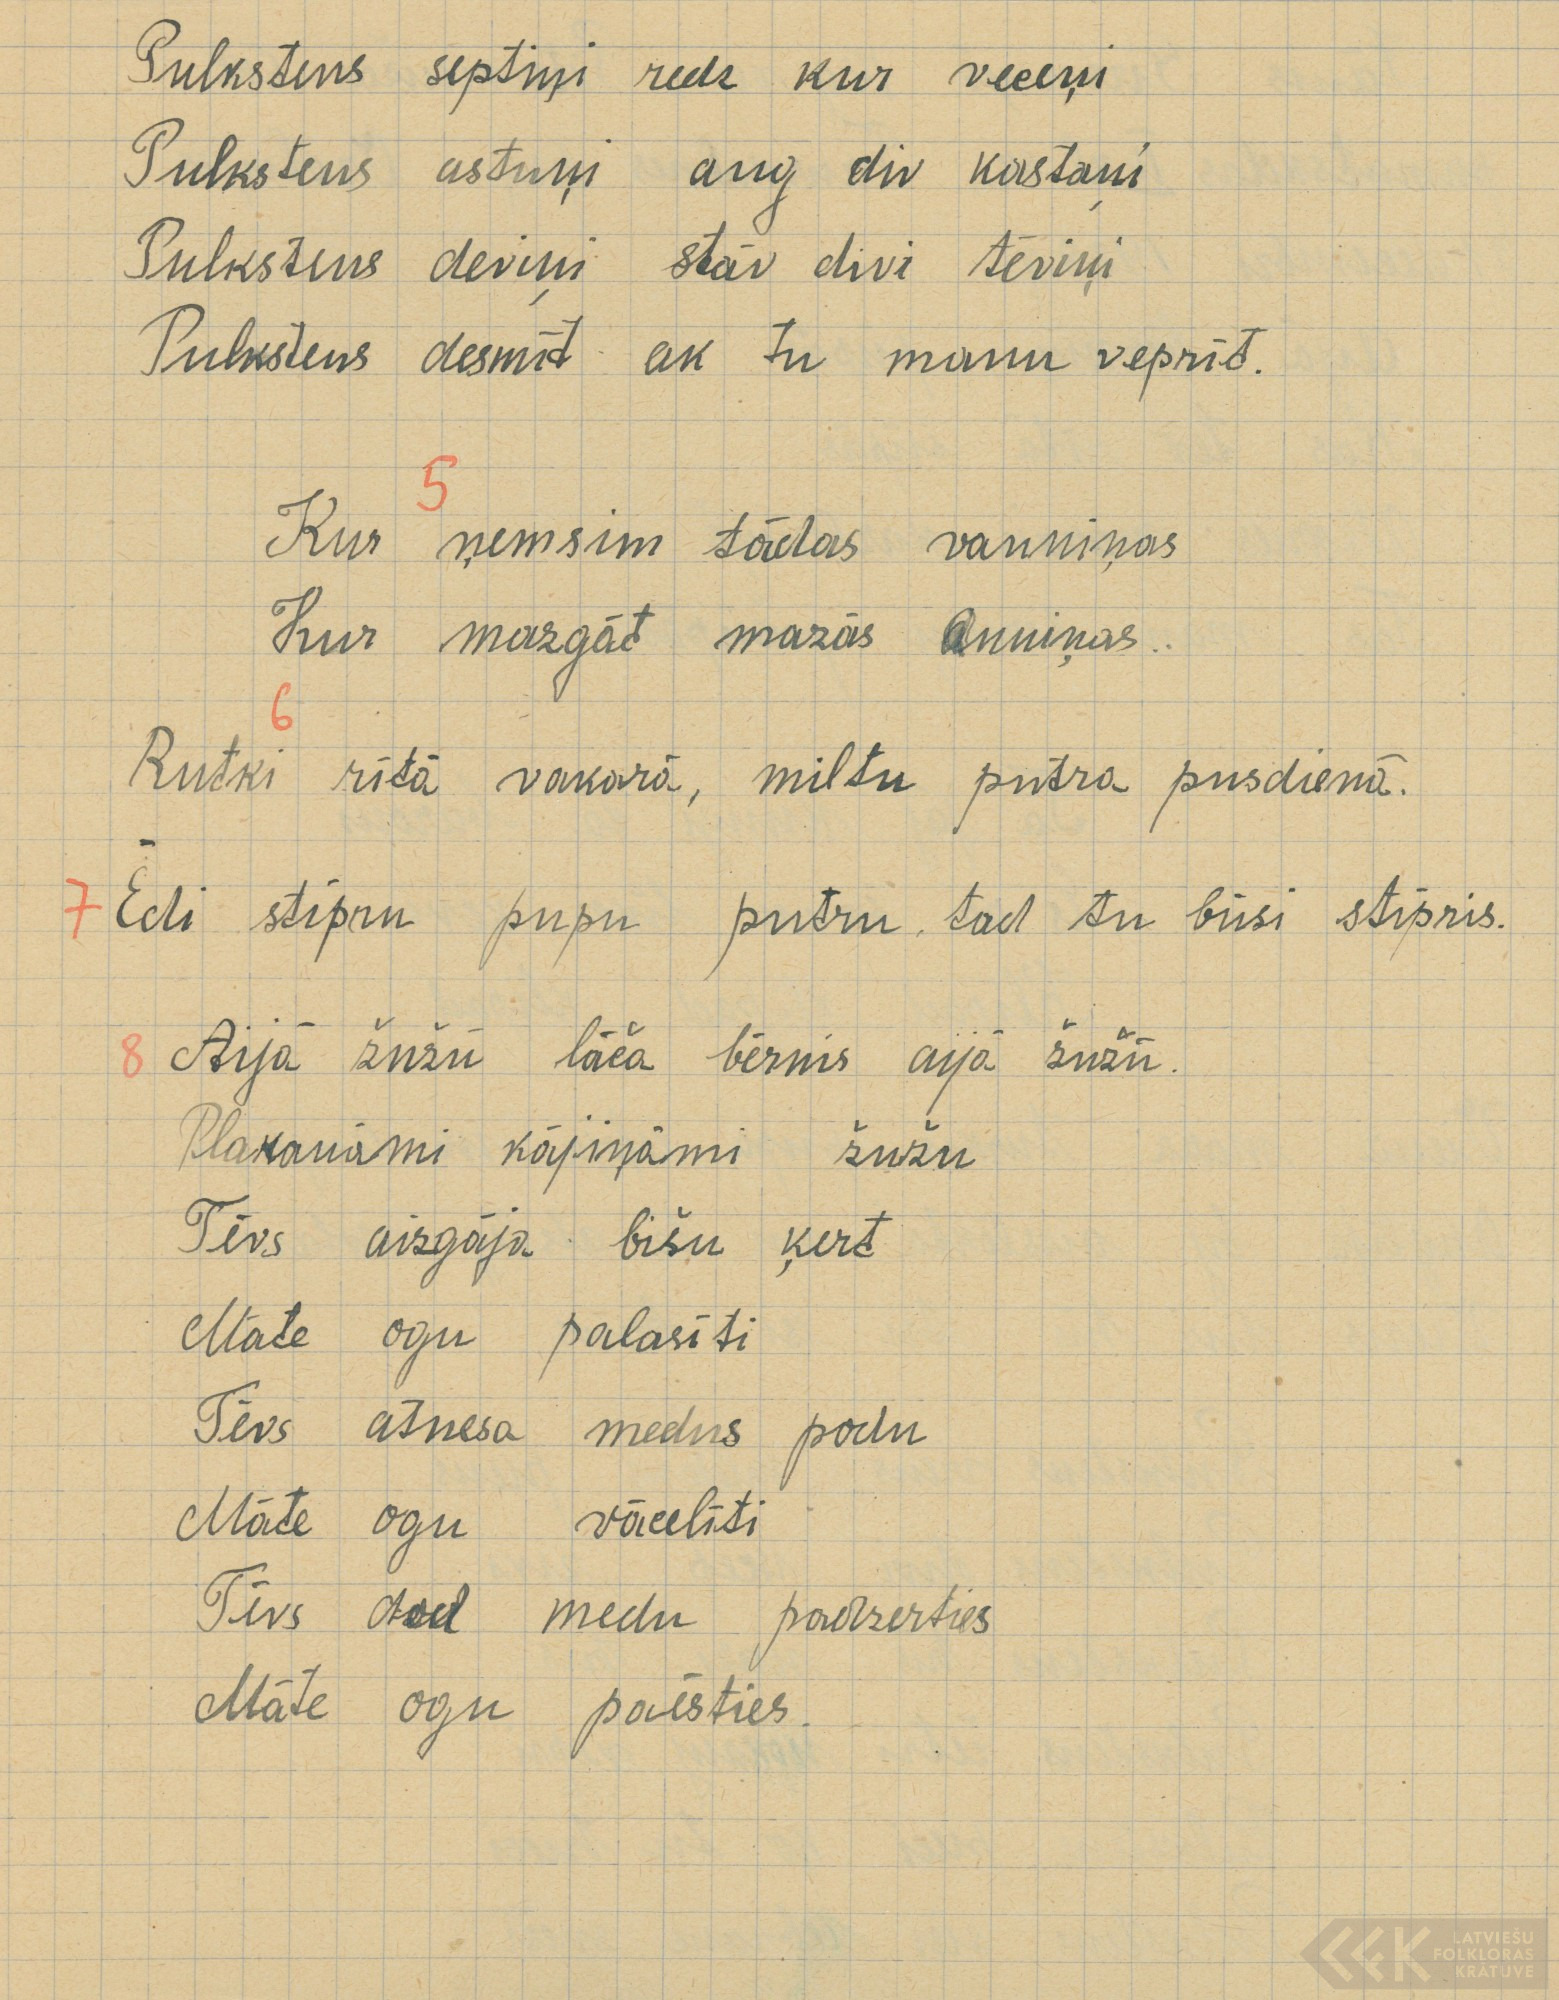 Pulkstens septiņi redz kur veceņi
Pulkstens astuņi aug div kastaņi
Pulkstens deviņi stāv divi tēviņi
Pulkstens desmīt ak tu manu veprīt.
5
Kur ņemsim tādas vanniņas
Kur mazgāt mazās Anniņas..
6
Rutki rītā vakarā, miltu putra pusdienā.
7 Ēdi stipru pupu putru, tad tu būsi stipris.
8 Aijā žužū lāča bērnis aijā žužū.
Plakanāmi kājiņāmi žužu
Tēvs aizgāja bišu ķert
Māte ogu palasīti
Tēvs atnesa medus podu
Māte ogu vācelīti
Tēvs dod medu padzerties
Māte ogu paēsties.
LATVIEŠU
FOLKLORAS
KRĀTUVE